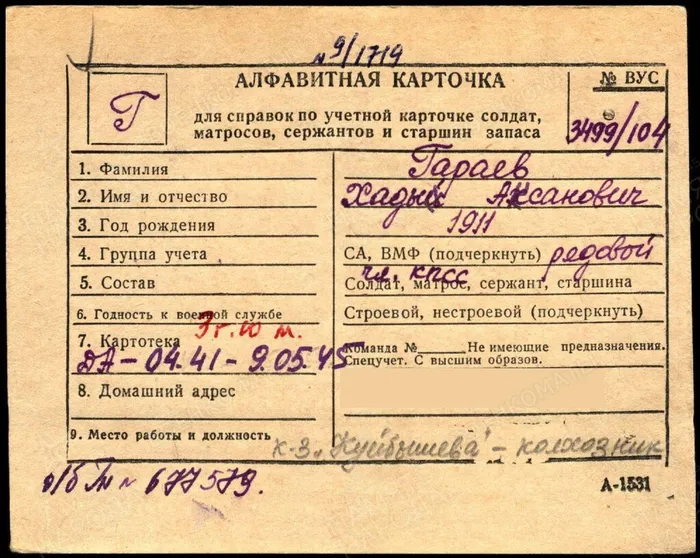 № 9/1719
АЛФАВИТНАЯ КАРТОЧКА
№ ВУС
Г
для справок по учетной карточке солдат,
матросов, сержантов и старшин запаса
3499/104
1. Фамилия Гараев
2. Имя и отчество Хадый Аксанович
3. Год рождения 1911
4. Группа учета СА, ВМФ (подчеркнуть) редовой
чл. КПСС
5. Состав Солдат, матрос, сержант, старшина
6. Годность к военной службе Строевой, нестроевой (подчеркнуть)
7. Картотека
Команда № Не имеющие предназначения.
ДА - 04.41 - 9.05.45
Спецучет. С высшим образов.
8. Домашний адрес
9. Место работы и должность к-з „Куйбышева" - колхозник
в/б № 677579.
А-1531